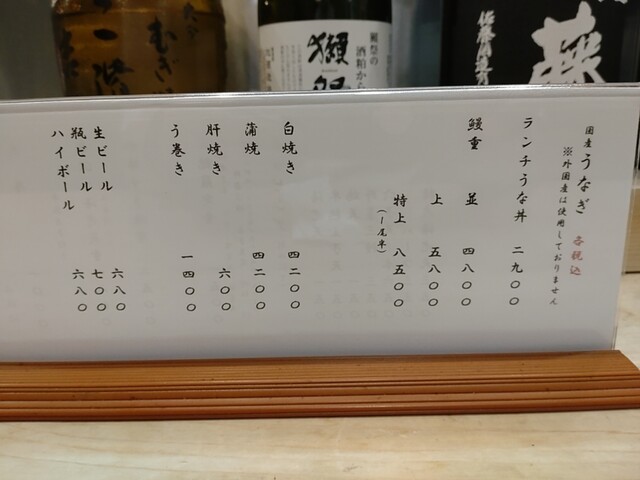 国産 うなぎ 各税込
※外国産は使用しておりません
ランチうな丼 二九〇〇
鰻重 並 四八〇〇
上 五八〇〇
特上 八五〇〇
(一尾半)
白焼き 四二〇〇
蒲焼 四二〇〇
肝焼き 六〇〇
う巻き 一四〇〇
生ビール 六八〇
瓶ビール 七〇〇
ハイボール 六八〇
獺祭の
酒粕から
獺祭
二階
むぎ